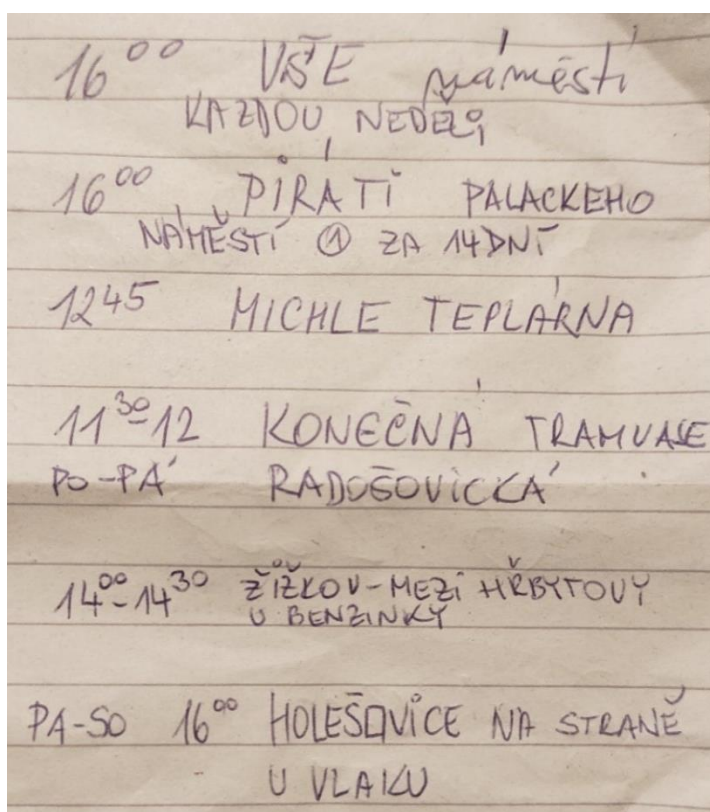 16⁰⁰ VŠE náměstí
KAŽDOU NEDĚLI
16⁰⁰ PIRÁTI PALACKEHO
NÁMĚSTÍ ① ZA 14 DNÍ
12⁴⁵ MICHLE TEPLÁRNA
11³⁰-12 KONEČNÁ TRAMVAJE
PO-PÁ RADOŠOVICKÁ
14⁰⁰-14³⁰ ŽIŽKOV-MEZI HŘBYTOVY
U BENZINKY
PA-SO 16⁰⁰ HOLEŠOVICE NA STRANĚ
U VLAKU